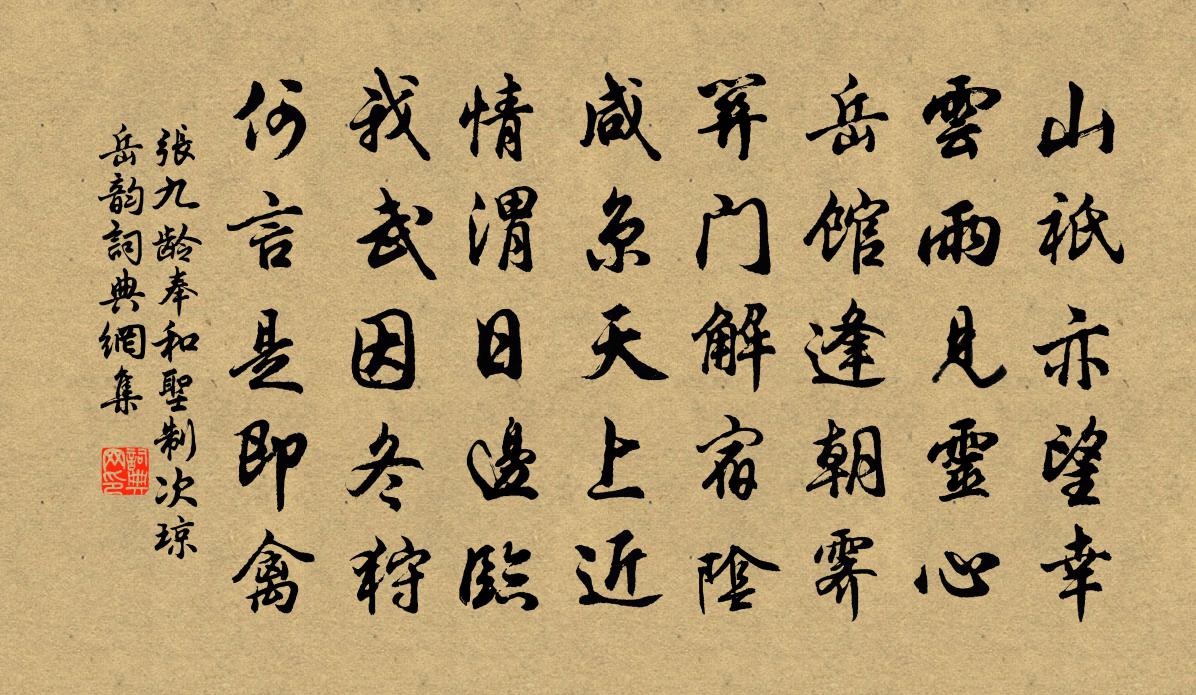 山祇亦望幸
雲雨見靈心
岳館逢朝霽
关门解宿陰
咸京天上近
情渭日邊臨
我武因冬狩
何言是即禽
張九龄奉和聖制次琼
岳韵詞典網集
詞典
网印